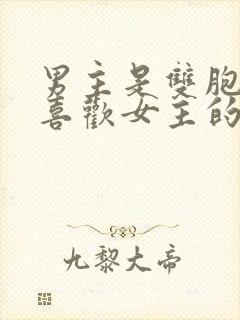 男主是雙胞
喜歡女主的
九黎大帝